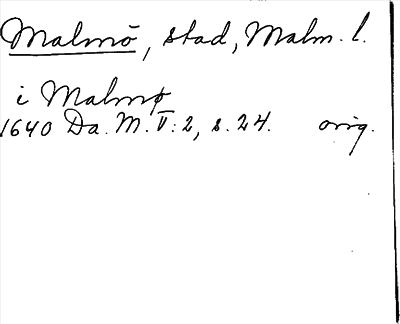 Malmö, stad, Malm. l.
i Malmø
1640 Da. M. V: 2, s. 24. orig.